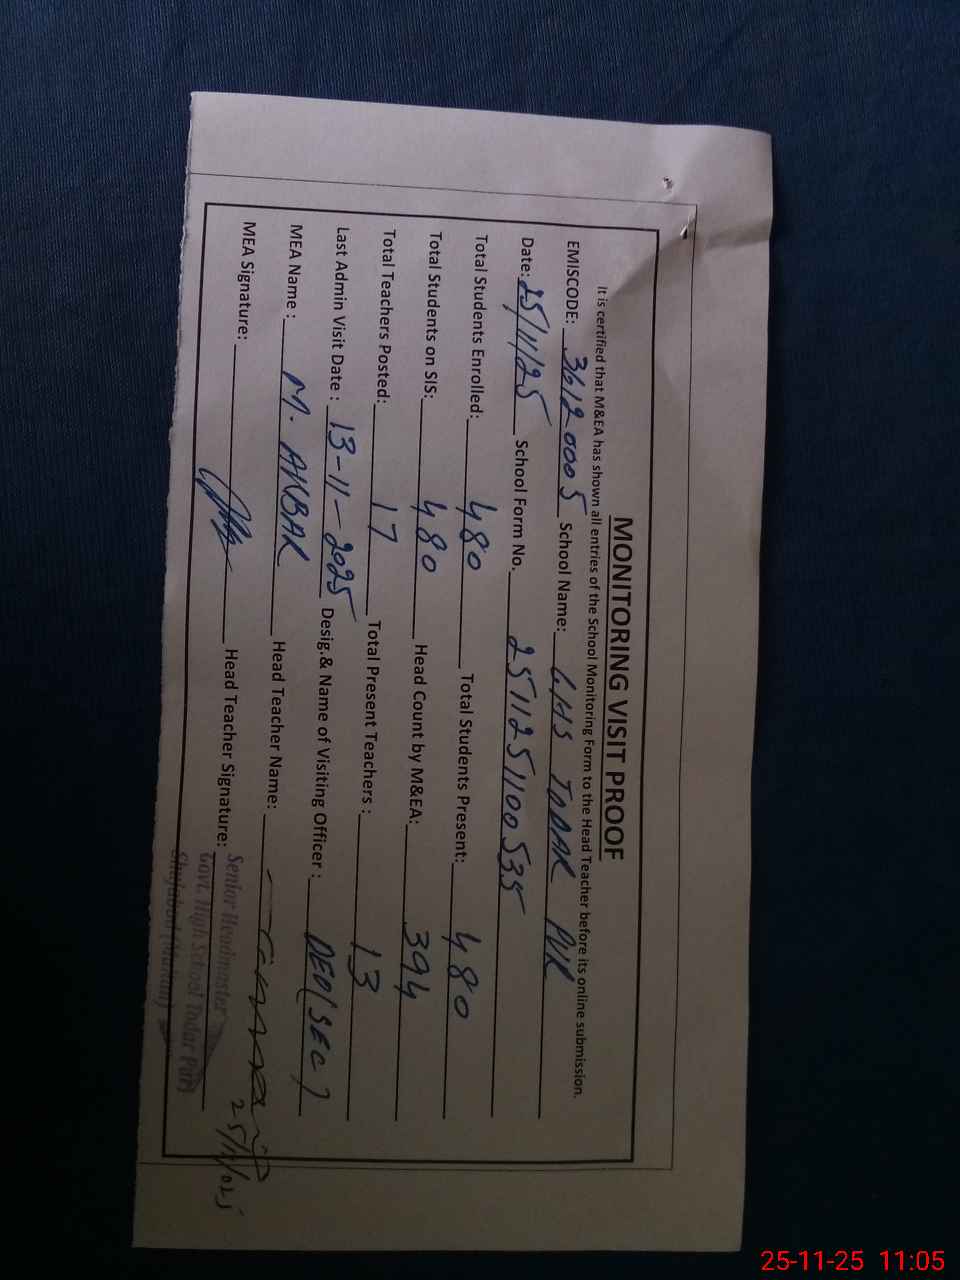 MONITORING VISIT PROOF
It is certified that M&EA has shown all entries of the School Monitoring Form to the Head Teacher before its online submission.
EMISCODE: 36120005 School Name: GHS TODAR PUR
Date: 25/11/25 School Form No. 2511251100535
Total Students Enrolled: 480 Total Students Present: 480
Total Students on SIS: 480 Head Count by M&EA: 394
Total Teachers Posted: 17 Total Present Teachers : 13
Last Admin Visit Date : 13-11-2025 Desig.& Name of Visiting Officer : DEO(SEC)
MEA Name : M. AKBAR Head Teacher Name:
MEA Signature: Head Teacher Signature:
Senior Headmaster
Govt. High School Todar Pur
Shujabad (Multan)
25-11-25 11:05